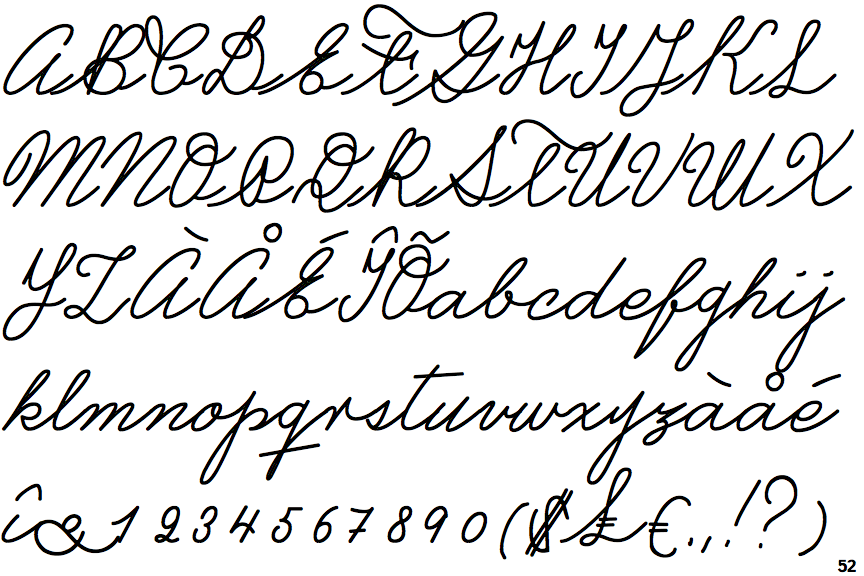 ABCDEFGHIJKL
MNOPQRSTUVWX
YZÀÅÉÎÕabcdefghij
klmnopqrstuvwxyzàåé
î&1234567890($£€.,!?)
52